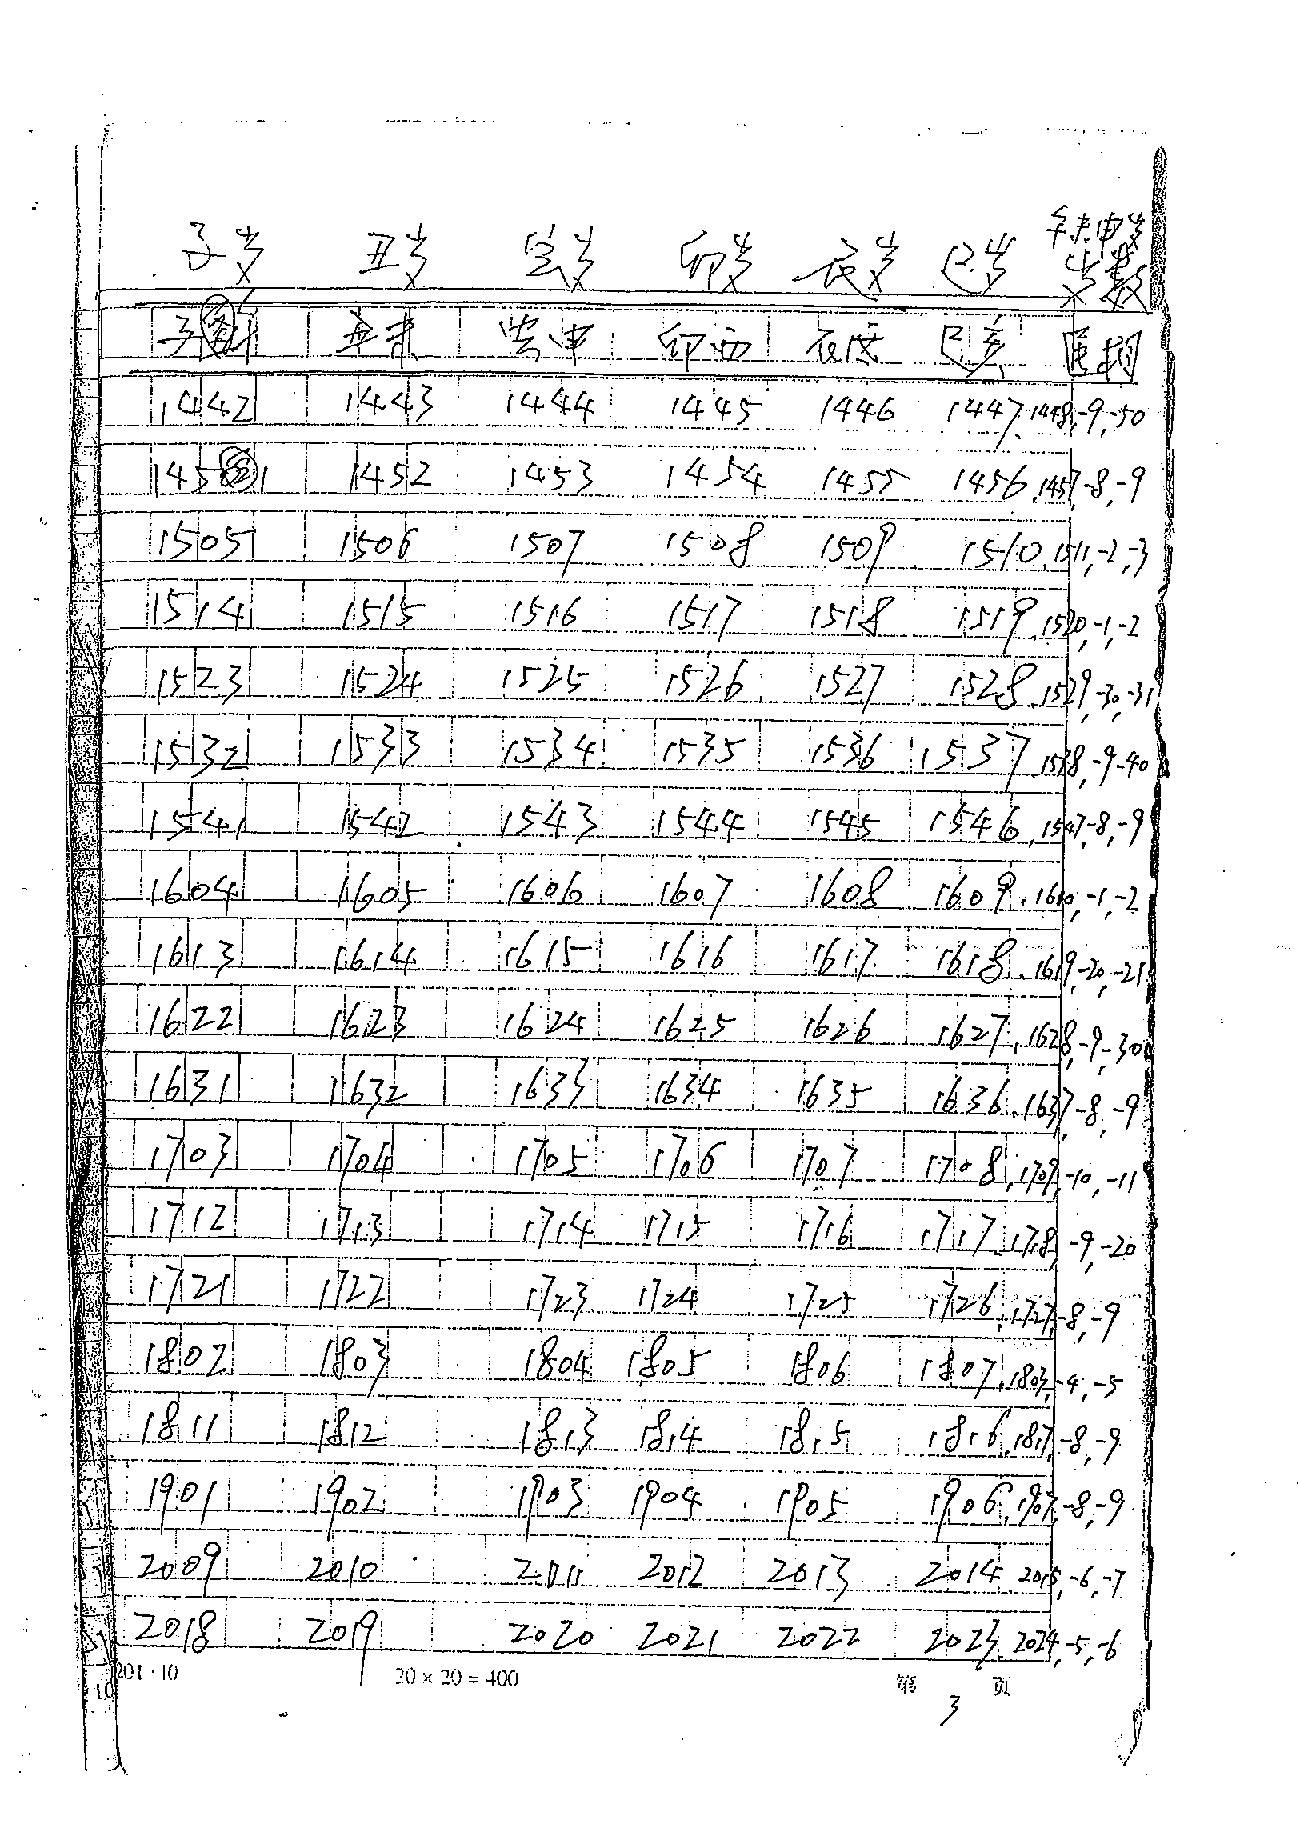 子岁 丑岁 寅岁 卯岁 辰岁 巳岁 午未申岁
岁数
子午 丑未 寅申 卯酉 辰戌 巳亥
1442 1443 1444 1445 1446 1447. 1448, -9, -50
1451 1452 1453 1454 1455 1456. 1457, -8, -9
1505 1506 1507 1508 1509 1510. 1511, -2, -3
1514 1515 1516 1517 1518 1519. 1520, -1, -2
1523 1524 1525 1526 1527 1528. 1529, -30, -31
1532 1533 1534 1535 1536 1537. 1538, -9, -40
1541 1542 1543 1544 1545 1546. 1547, -8, -9
1604 1605 1606 1607 1608 1609. 1610, -1, -2
1613 1614 1615 1616 1617 1618. 1619, -20, -21
1622 1623 1624 1625 1626 1627. 1628, -9, -30
1631 1632 1633 1634 1635 1636. 1637, -8, -9
1703 1704 1705 1706 1707 1708. 1709, -10, -11
1712 1713 1714 1715 1716 1717. 1718, -9, -20
1721 1722 1723 1724 1725 1726. 1727, -8, -9
1802 1803 1804 1805 1806 1807. 1803, -4, -5
1811 1812 1813 1814 1815 1816. 1817, -8, -9
1901 1902 1903 1904 1905 1906. 1907, -8, -9
2009 2010 2011 2012 2013 2014. 2015, -6, -7
2018 2019 2020 2021 2022 2023. 2024, -5, -6
201·10 20×20=400 第 页
3